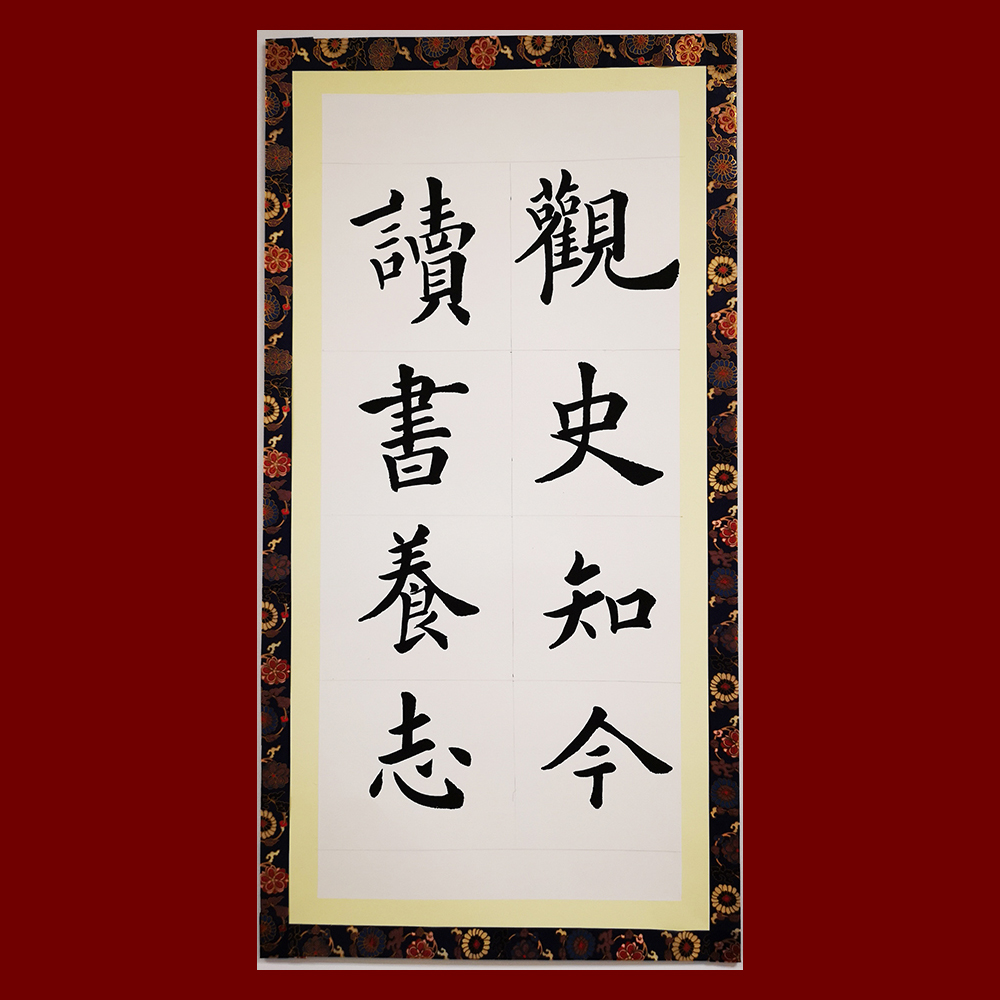 觀史知今
讀書養志